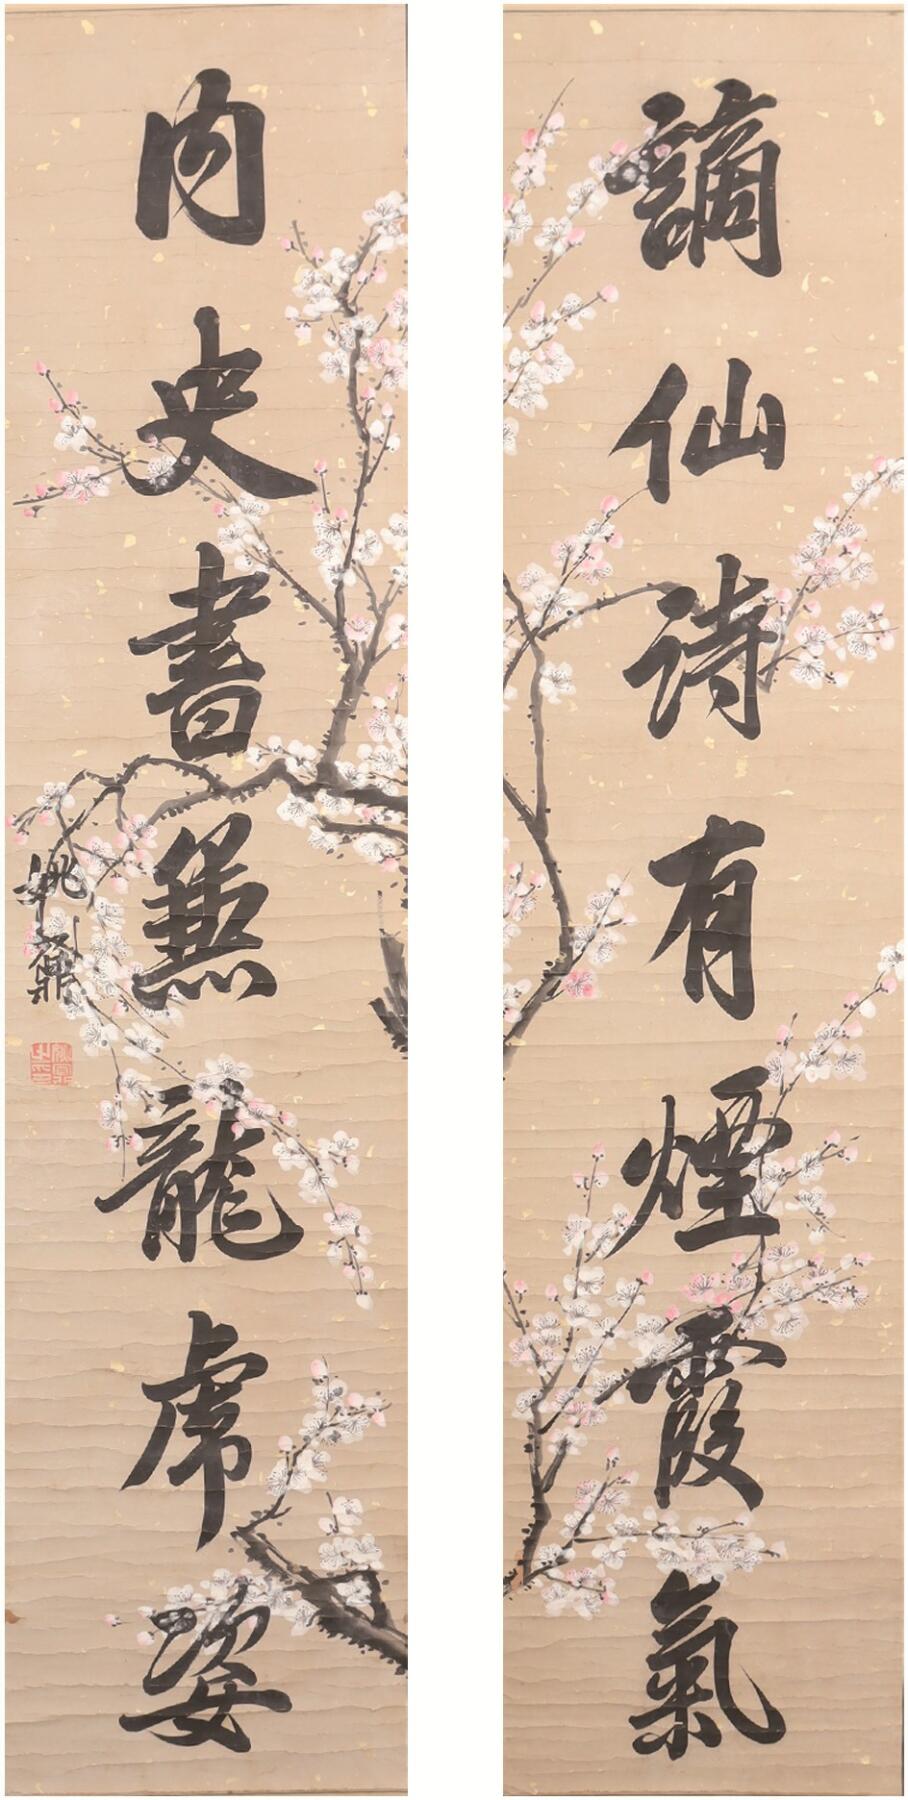 謫仙詩有煙霞氣
內史書兼龍虎姿
姚鼐